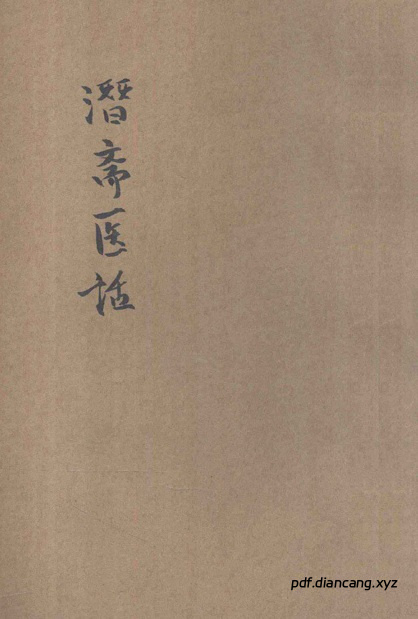 潜斋医话
pdf.diancang.xyz